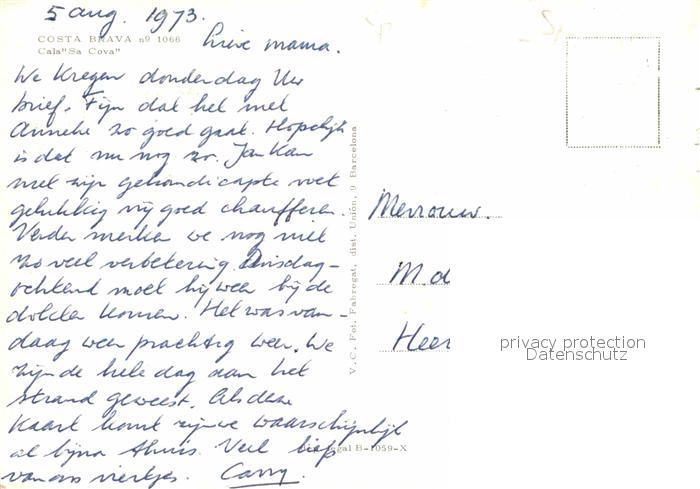 5 aug. 1973.
COSTA BRAVA nº 1066
Cala "Sa Cova"
Lieve mama.
We kregen donderdag Uw
brief. Fijn dat het met
Anneke zo goed gaat. Hopelijk
is dat nu nog zo. Jan kan
met zijn gehandicapte voet
gelukkig vrij goed chaufferen.
Verder merken we nog niet
zo veel verbetering. Dinsdag-
ochtend moet hij weer bij de
dokter komen. Het was van-
daag weer prachtig weer. We
zijn de hele dag aan het
strand geweest. Als deze
kaart komt zijn we waarschijnlijk
al bijna thuis. Veel liefs
van ons viertjes. Carry.
V.C. Fot. Fabregat, dist. Unión, 9 Barcelona
gal B-1059-X
Mevrouw.
M. d
Heer
privacy protection
Datenschutz